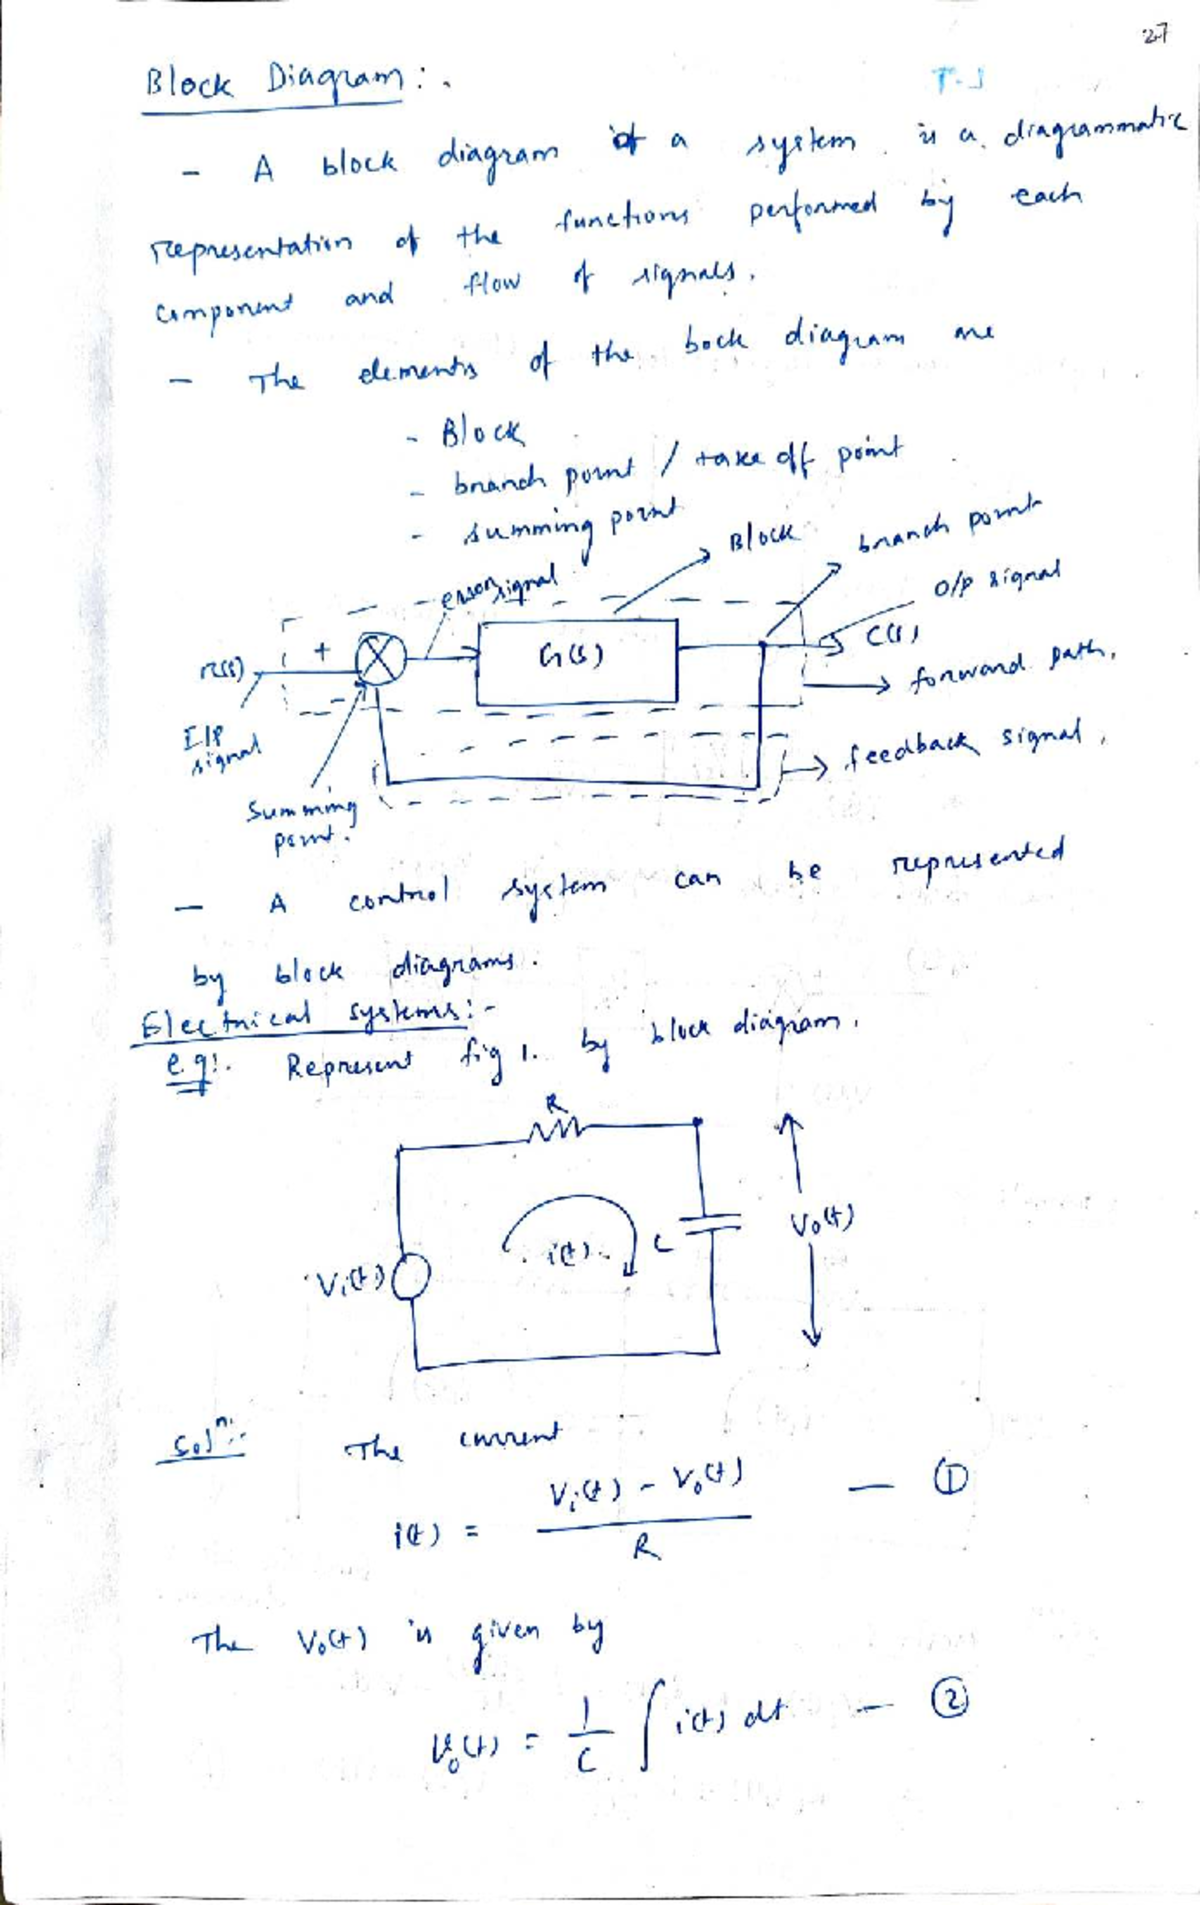 27
T-1
Block Diagram:.
- A block diagram of a system is a diagrammatic
representation of the functions performed by each
component and flow of signals.
- The elements of the bock diagram are
- Block
- branch point / take off point
- summing point
error signal
Block
branch point
o/p signal
r(s)
+
G(s)
C(s)
forward path.
I/P
signal
feedback signal.
Summing
point.
- A control system can be represented
by block diagrams.
Electrical systems:-
e.g:. Represent fig 1. by block diagram.
R
Vi(t)
i(t)
C
Vo(t)
Soln:- The current
i(t) = Vi(t) - Vo(t) / R — ①
The Vo(t) is given by
Vo(t) = 1/C ∫ i(t) dt — ②